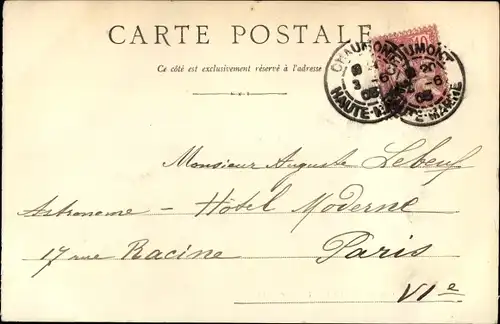 CARTE POSTALE
Ce côté est exclusivement réservé à l'adresse
CHAUMONT
HAUTE-MARNE
Monsieur Auguste Lebeuf
Astronome - Hôtel Moderne
17 rue Racine Paris
VIe